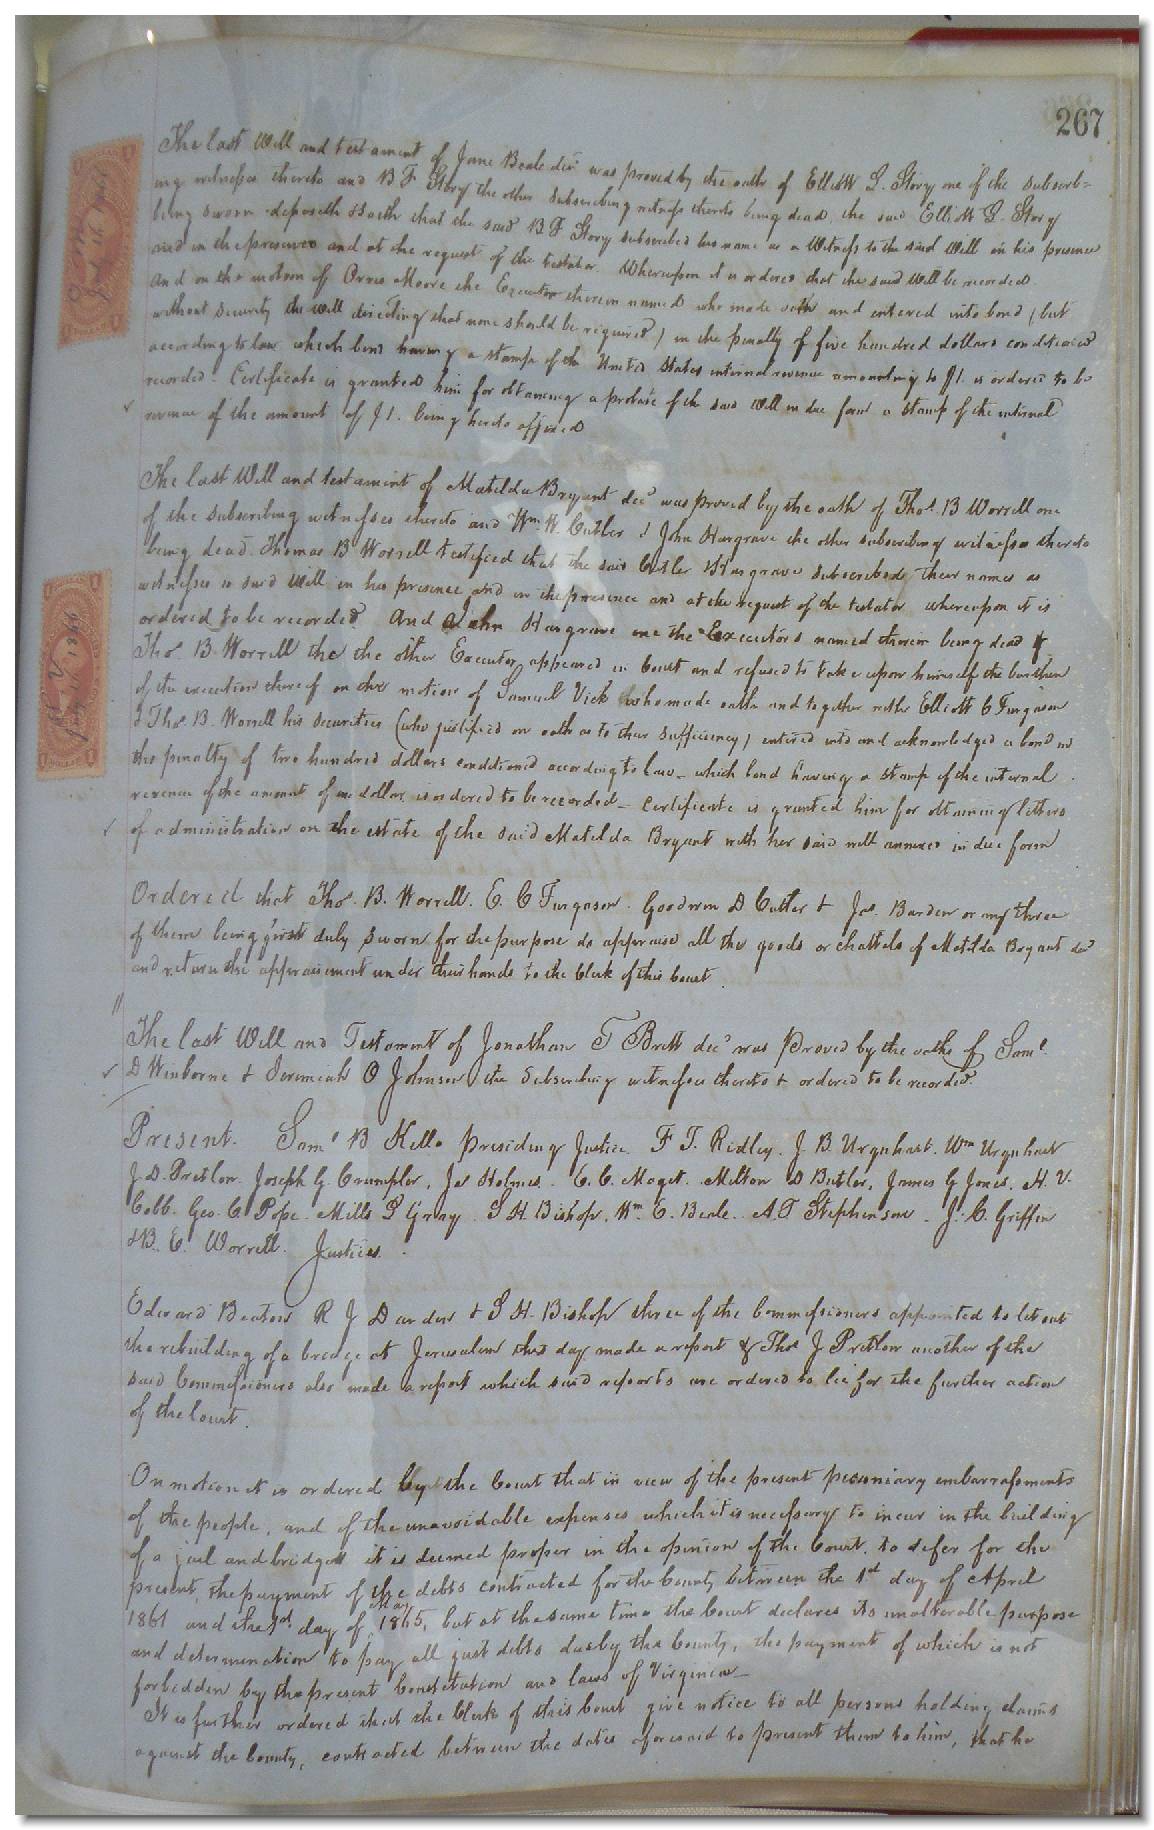 267
The last Will and testament of Jane Beale decd was proved by the oath of Elliott L. Story one of the subscrib=
ing witnesses thereto and B F Story the other subscribing witness thereto being dead, the said Elliott L. Story
being sworn deposeth & saith that the said B F Story subscribed his name as a Witness to the said Will in his presence
and in the presence and at the request of the testator. Whereupon it is ordered that the said Will be recorded.
And on the motion of Orris Moore the Executor therein named who made oath and entered into bond (but
without security the will directing that none should be required) in the penalty of five hundred dollars conditioned
according to law which bond having a stamp of the United States internal revenue amounting to $1. is ordered to be
recorded. Certificate is granted him for obtaining a probate of the said Will in due form a stamp of the internal
revenue of the amount of $1. being hereto affixed
The last Will and testament of Matilda Bryant decd was proved by the oath of Thos. B Worrell one
of the subscribing witnesses thereto and Wm. W. Cutler & John Hargrave the other subscribing witnesses thereto
being dead. Thomas B Worrell testified that the said Cutler & Hargrave subscribed their names as
witnesses to said Will in his presence and in the presence and at the request of the testator whereupon it is
ordered to be recorded. And John Hargrave one the Executors named therein being dead &
Thos. B. Worrell the the other Executor appeared in Court and refused to take upon himself the burthen
of the execution thereof on the motion of Samuel Vick who made oath and together with Elliott C Furgason
& Thos. B. Worrell his securities (who justified on oath as to their sufficiency) entered into and acknowledged a bond in
the penalty of two hundred dollars conditioned according to law _ which bond having a stamp of the internal
revenue of the amount of one dollar is ordered to be recorded _ certificate is granted him for obtaining letters
of administration on the estate of the said Matilda Bryant with her said will annexed in due form
Ordered that Thos. B. Worrell. E. C Furgason. Goodwin D Cutler & Jas. Barden or any three
of them being first duly sworn for the purpose do appraise all the goods or chattels of Matilda Bryant decd
and return the appraisement under their hands to the Clerk of this Court.
The last Will and Testament of Jonathan T Britt decd was Proved by the oaths of Saml.
D Winborne & Jeremiah O Johnson the Subscribing witnesses thereto & ordered to be recorded.
Present. Saml B Kello presiding Justice. F T. Ridley. J. B. Urquhart. Wm Urquhart
J. D. Pretlow. Joseph G. Crumpler, Jas Holmes. C. C. Maget. Milton D Butler, James G Jones. H. V.
Cobb. Geo. C Pope. Mills L Gray. S. H. Bishop. Wm E. Beale. A. T Stephenson. J. C. Griffin
& B. E. Worrell. Justices.
Edward Beaton R J Darden & S. H. Bishop three of the Commissioners appointed to let out
the rebuilding of a bridge at Jerusalem this day made a report & Thos J Pretlow another of the
said Commissioners also made a report which said reports are ordered to lie for the further action
of the Court.
On motion it is ordered by the Court that in view of the present pecuniary embarrassments
of the people, and of the unavoidable expenses which it is necessary to incur in the building
of a jail and bridges it is deemed proper in the opinion of the Court, to defer for the
present, the payment of the debts contracted for the County between the 1st day of April
1861 and the 1st. day of May 1865, but at the same time the Court declares its unalterable purpose
and determination to pay all just debts due by the County, the payment of which is not
forbidden by the present Constitution and laws of Virginia _
It is further ordered that the Clerk of this Court give notice to all persons holding claims
against the County, contracted between the dates aforesaid to present them to him, that he